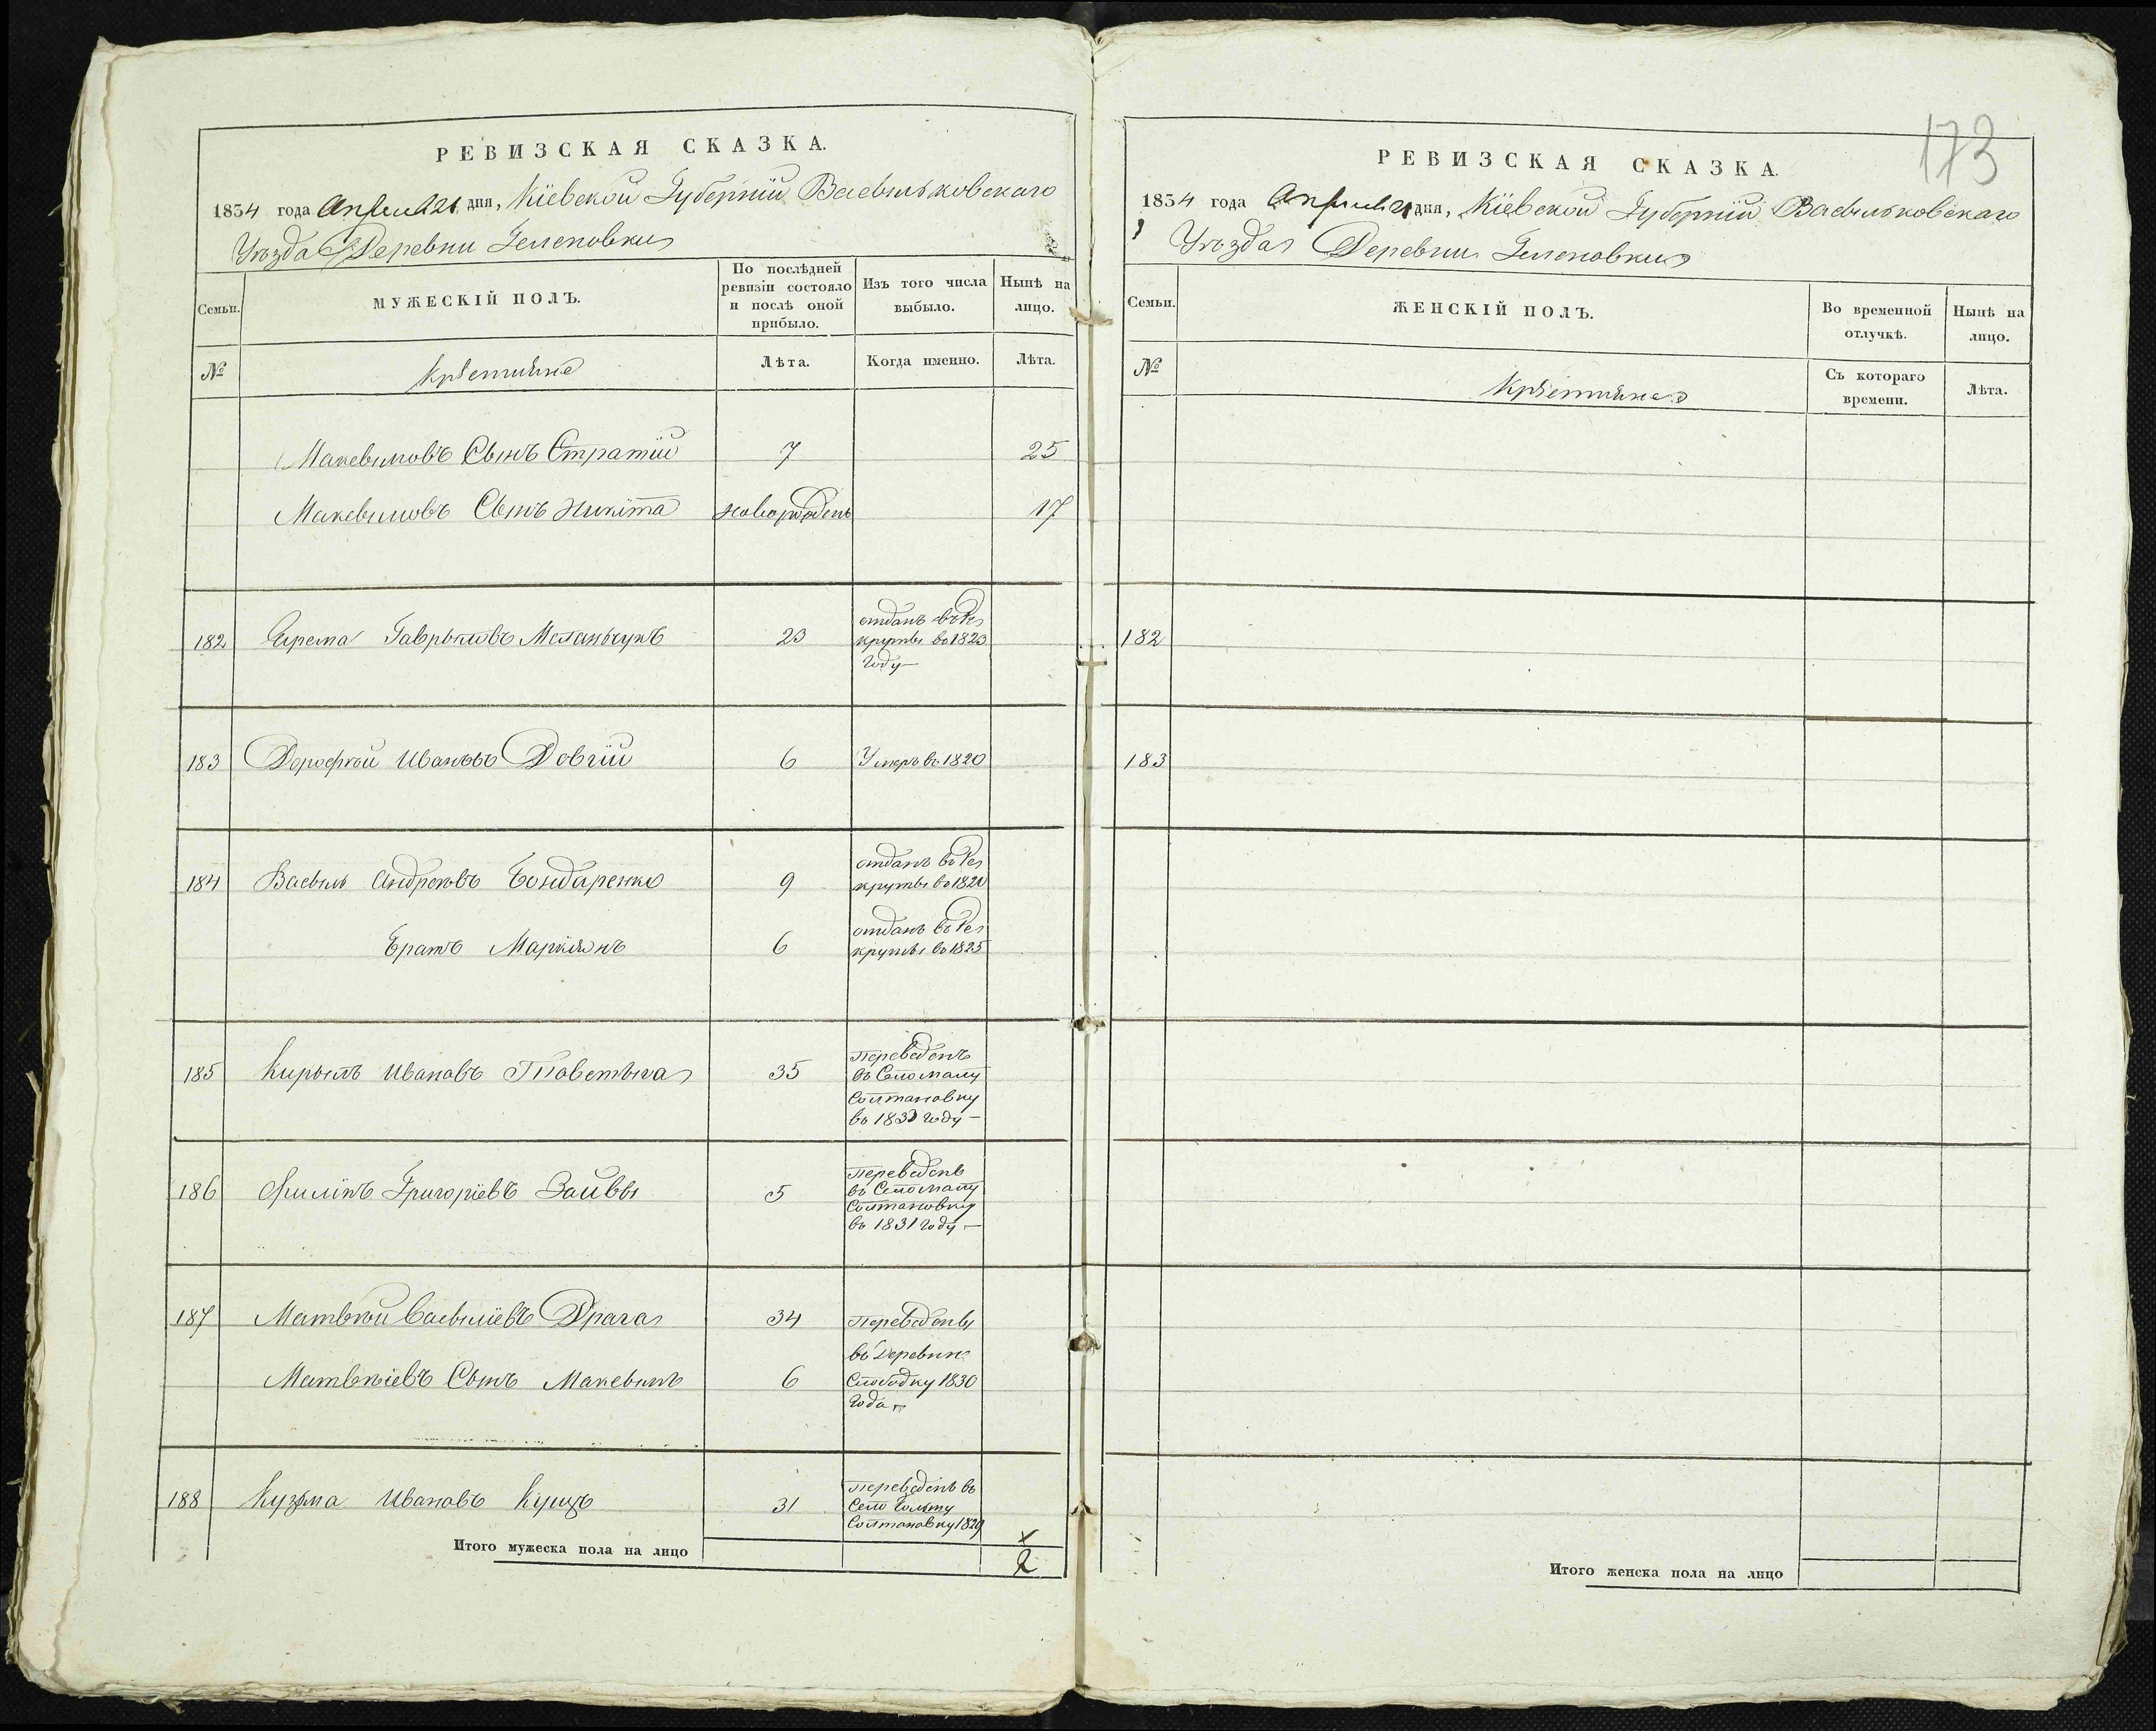 РЕВИЗСКАЯ СКАЗКА.
1834 года Апреля 21 дня, Кіевской Губерніи Васильковскаго
Уѣзда Деревни Геленовки
Семьи.
МУЖЕСКІЙ ПОЛЪ.
По послѣдней ревизіи состояло и послѣ оной прибыло.
Изъ того числа выбыло.
Нынѣ на лицо.
№
Лѣта.
Когда именно.
Лѣта.
Максымовъ Сынъ Стратій 7 25
Максымовъ Сынъ Никита новорожденъ 17
182 Ярема Гаврыловъ Меланчукъ 23 отданъ въ Ре
круты въ 1823
году
183 Дорофѣй Ивановъ Довгій 6 Умеръ въ 1820
184 Васыль Андреевъ Бондаренко 9 отданъ въ Ре
круты въ 1820
Братъ Маркіянъ 6 отданъ въ Ре
круты въ 1825
185 Кирылъ Ивановъ 35 переведенъ
въ Село Малу
Солтановку
въ 183 году
186 Филипъ Григоріевъ 5 переведенъ
въ Село Малу
Солтановку
въ 1831 году
187 Матвѣй Васыліевъ Драга 34 переведены
въ Деревню
Матвѣіевъ Сынъ Максымъ 6 Слободку 1830
года
188 Кузьма Ивановъ Куцъ 31 переведенъ въ
Село Большу
Солтановку 1829
Итого мужеска пола на лицо 2
173
РЕВИЗСКАЯ СКАЗКА.
1834 года Апреля 21 дня, Кіевской Губерніи Васильковскаго
Уѣзда Деревни Геленовки
Семьи.
ЖЕНСКІЙ ПОЛЪ.
Во временной отлучкѣ.
Нынѣ на лицо.
№
Съ котораго времени.
Лѣта.
182
183
Итого женска пола на лицо